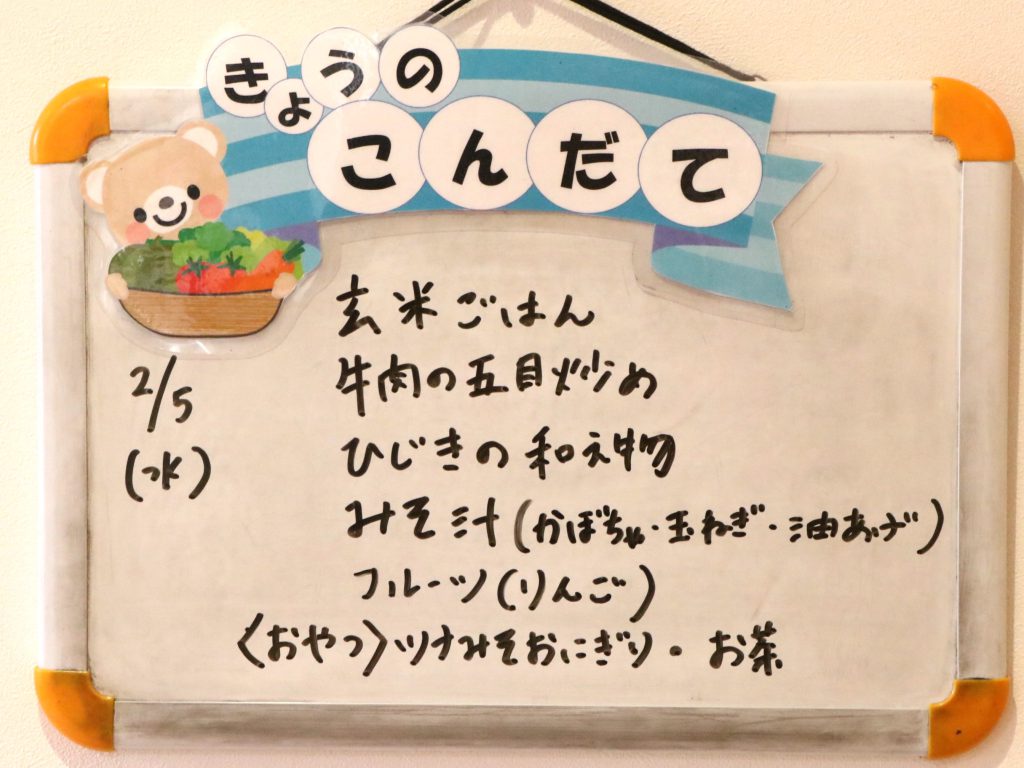 きょうの
こんだて
玄米ごはん
2/5
(水)
牛肉の五目炒め
ひじきの和え物
みそ汁(かぼちゃ・玉ねぎ・油あげ)
フルーツ(りんご)
〈おやつ〉ツナみそおにぎり・お茶